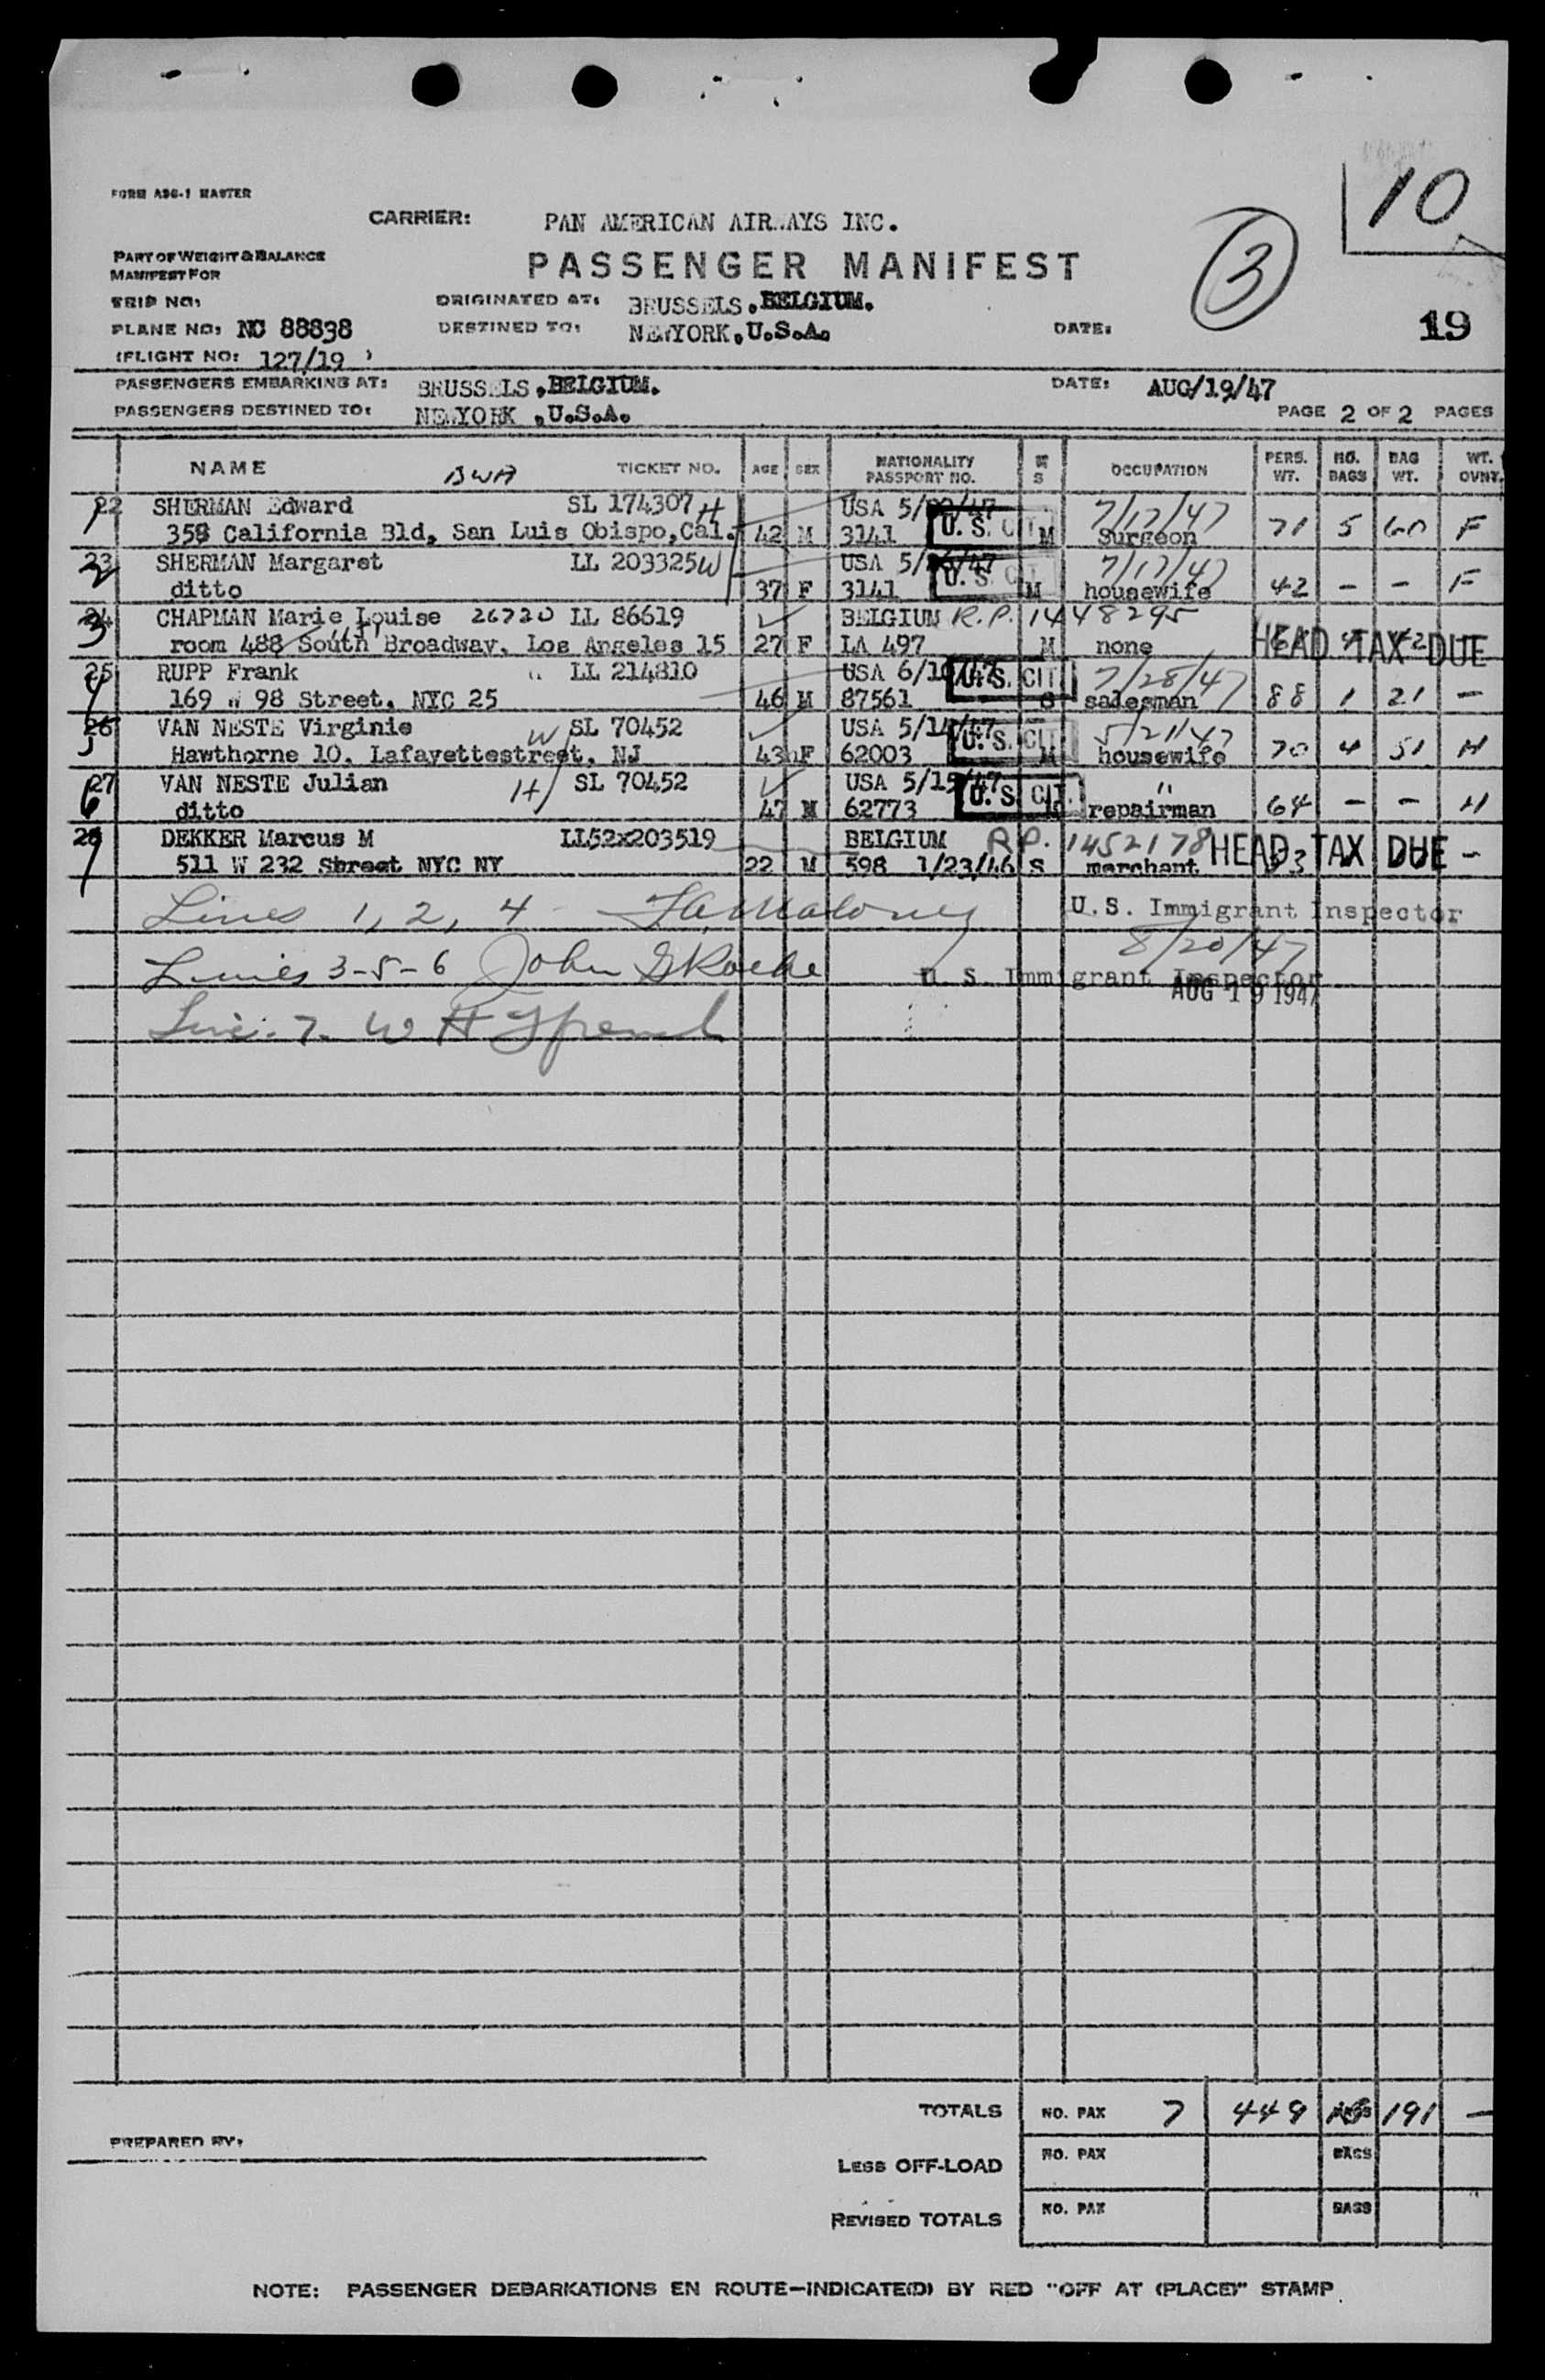 10
FORM ABG-1 MASTER
CARRIER: PAN AMERICAN AIRWAYS INC.
PART OF WEIGHT & BALANCE
MANIFEST FOR
PASSENGER MANIFEST
3
TRIP NO:
ORIGINATED AT: BRUSSELS, BELGIUM.
PLANE NO: NC 88838
DESTINED TO: NEWYORK, U.S.A.
DATE: 19
(FLIGHT NO: 127/19 )
PASSENGERS EMBARKING AT: BRUSSELS, BELGIUM. DATE: AUG/19/47
PASSENGERS DESTINED TO: NEWYORK, U.S.A. PAGE 2 OF 2 PAGES
NAME TICKET NO. AGE SEX NATIONALITY PASSPORT NO. M S OCCUPATION PERS. WT. NO. BAGS BAG WT. WT. OVNT.
22 SHERMAN Edward SL 174307 H USA 7/17/47
1 358 California Bld, San Luis Obispo, Cal. 42 M 3141 U.S. CIT M Surgeon 71 5 60 F
23 SHERMAN Margaret LL 203325 W USA 7/17/47
2 ditto 37 F 3141 U.S. CIT M housewife 42 - - F
24 CHAPMAN Marie Louise 26720 LL 86619 BELGIUM R.P. 1448295
3 room 488 South Broadway, Los Angeles 15 27 F LA 497 M none HEAD TAX DUE
25 RUPP Frank " LL 214810 USA 7/28/47
4 169 W 98 Street, NYC 25 46 M 87561 U.S. CIT. S salesman 88 1 21 -
26 VAN NESTE Virginie W SL 70452 USA 5/21/47
5 Hawthorne 10, Lafayettestreet, NJ 43 F 62003 U.S. CIT M housewife 70 4 51 H
27 VAN NESTE Julian H SL 70452 USA 5/15/47 "
6 ditto 47 M 62773 U.S. CIT. repairman 64 - - H
28 DEKKER Marcus M LL52x203519 BELGIUM R.P. 1452178 HEAD TAX DUE -
7 511 W 232 Street NYC NY 22 M 598 1/23/46 S merchant
Lines 1, 2, 4 U.S. Immigrant Inspector
8/20/47
Lines 3-5-6 John U. S. Immigrant Inspector
AUG 19 1947
Line 7. W H
TOTALS NO. PAX 7 449 BAGS 191 -
PREPARED BY:
LESS OFF-LOAD NO. PAX BAGS
REVISED TOTALS NO. PAX BAGS
NOTE: PASSENGER DEBARKATIONS EN ROUTE-INDICATE(D) BY RED "OFF AT (PLACE)" STAMP.